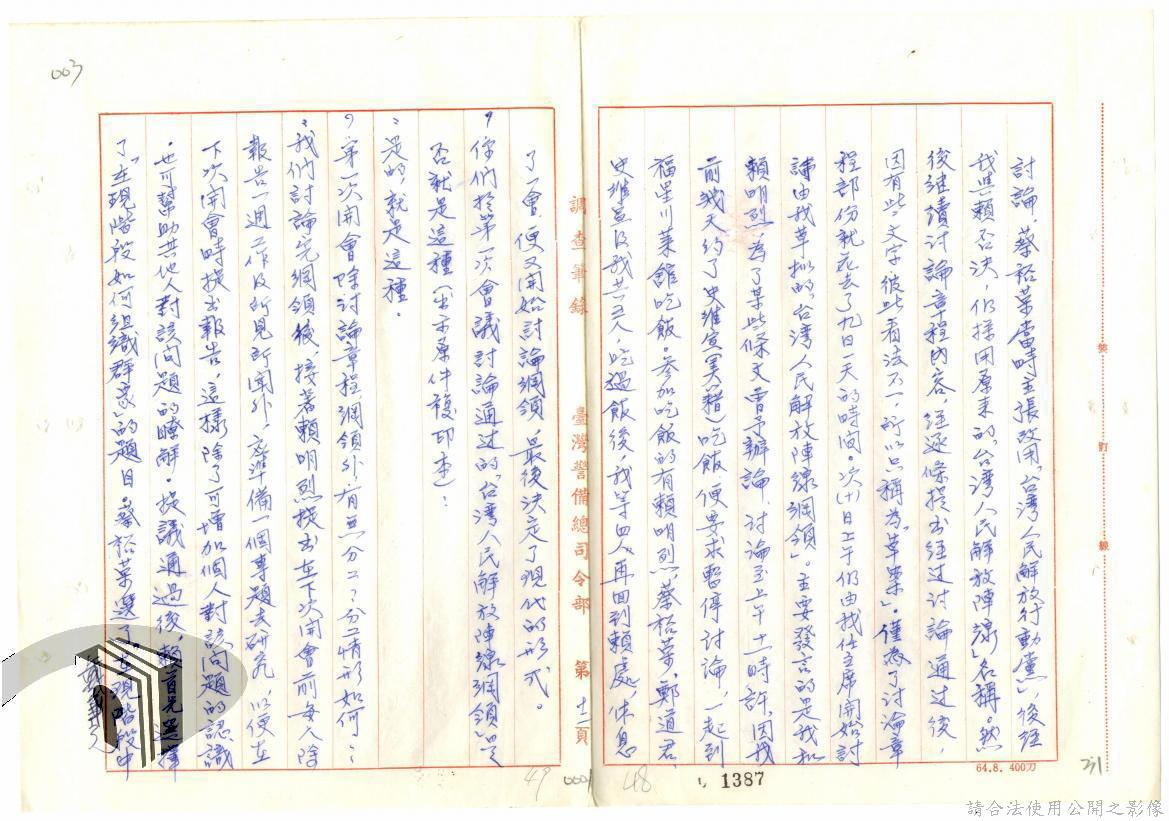 003
討論，蔡裕榮當時主張改用「台湾人民解放行動黨」，後經
我與賴否決，仍採用原來的「台湾人民解放陣線」名稱。然
後継續討論章程內容，經逐條提出經过討論通过後，
因有些文字彼此看法不一，所以只稱為「草案」。僅為了討論章
程部份就花去了九日一天的時间。次(十)日上午仍由我任主席開始討
論由我草拟的「台湾人民解放陣線綱領」。主要發言的是我和
賴明烈，為了某些條文曾予辯論，討論至上午十一時許，因我
前幾天約了史維宣(美籍)吃飯，便要求暫停討論，一起到
福星川菜館吃飯，參加吃飯的有賴明烈、蔡裕榮、鄭道君、
史維宣及我共五人，吃過飯後，我等四人再回到賴處，休息
1387
48
64.8. 400刀
231
裝
訂
線
調查筆錄
臺灣警備總司令部
第十二頁
了一會，便又開始討論綱領，最後決定了現代的形式。
你們於第一次會議討論通过的「台湾人民解放陣線綱領」是
否就是這種(出示原件複印本)：
：是的，就是這種。
第一次開會除討論章程綱領外，有無分工？分工情形如何：
：我們討論完綱領後，接著賴明烈提出在下次開會前每人除
報告一週工作及所見所聞外，應準備一個專題去研究，以便在
下次開會時提出報告，這樣除了可增加個人對該问題的認識
，也可幫助其他人對該问題的瞭解。提議通過後，賴首先選擇
了「在現階段如何組織群衆」的題目。蔡裕榮選了「在現階段中
49
請合法使用公開之影像